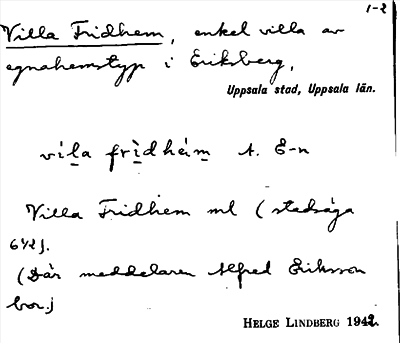 1-2
Villa Fridhem, enkel villa av
egnahemstyp i Eriksberg,
Uppsala stad, Uppsala län.
víla frìdhém A. E-n
Villa Fridhem ml (stadsäga
612).
(Där meddelaren Alfred Eriksson
bor.)
HELGE LINDBERG 1942.